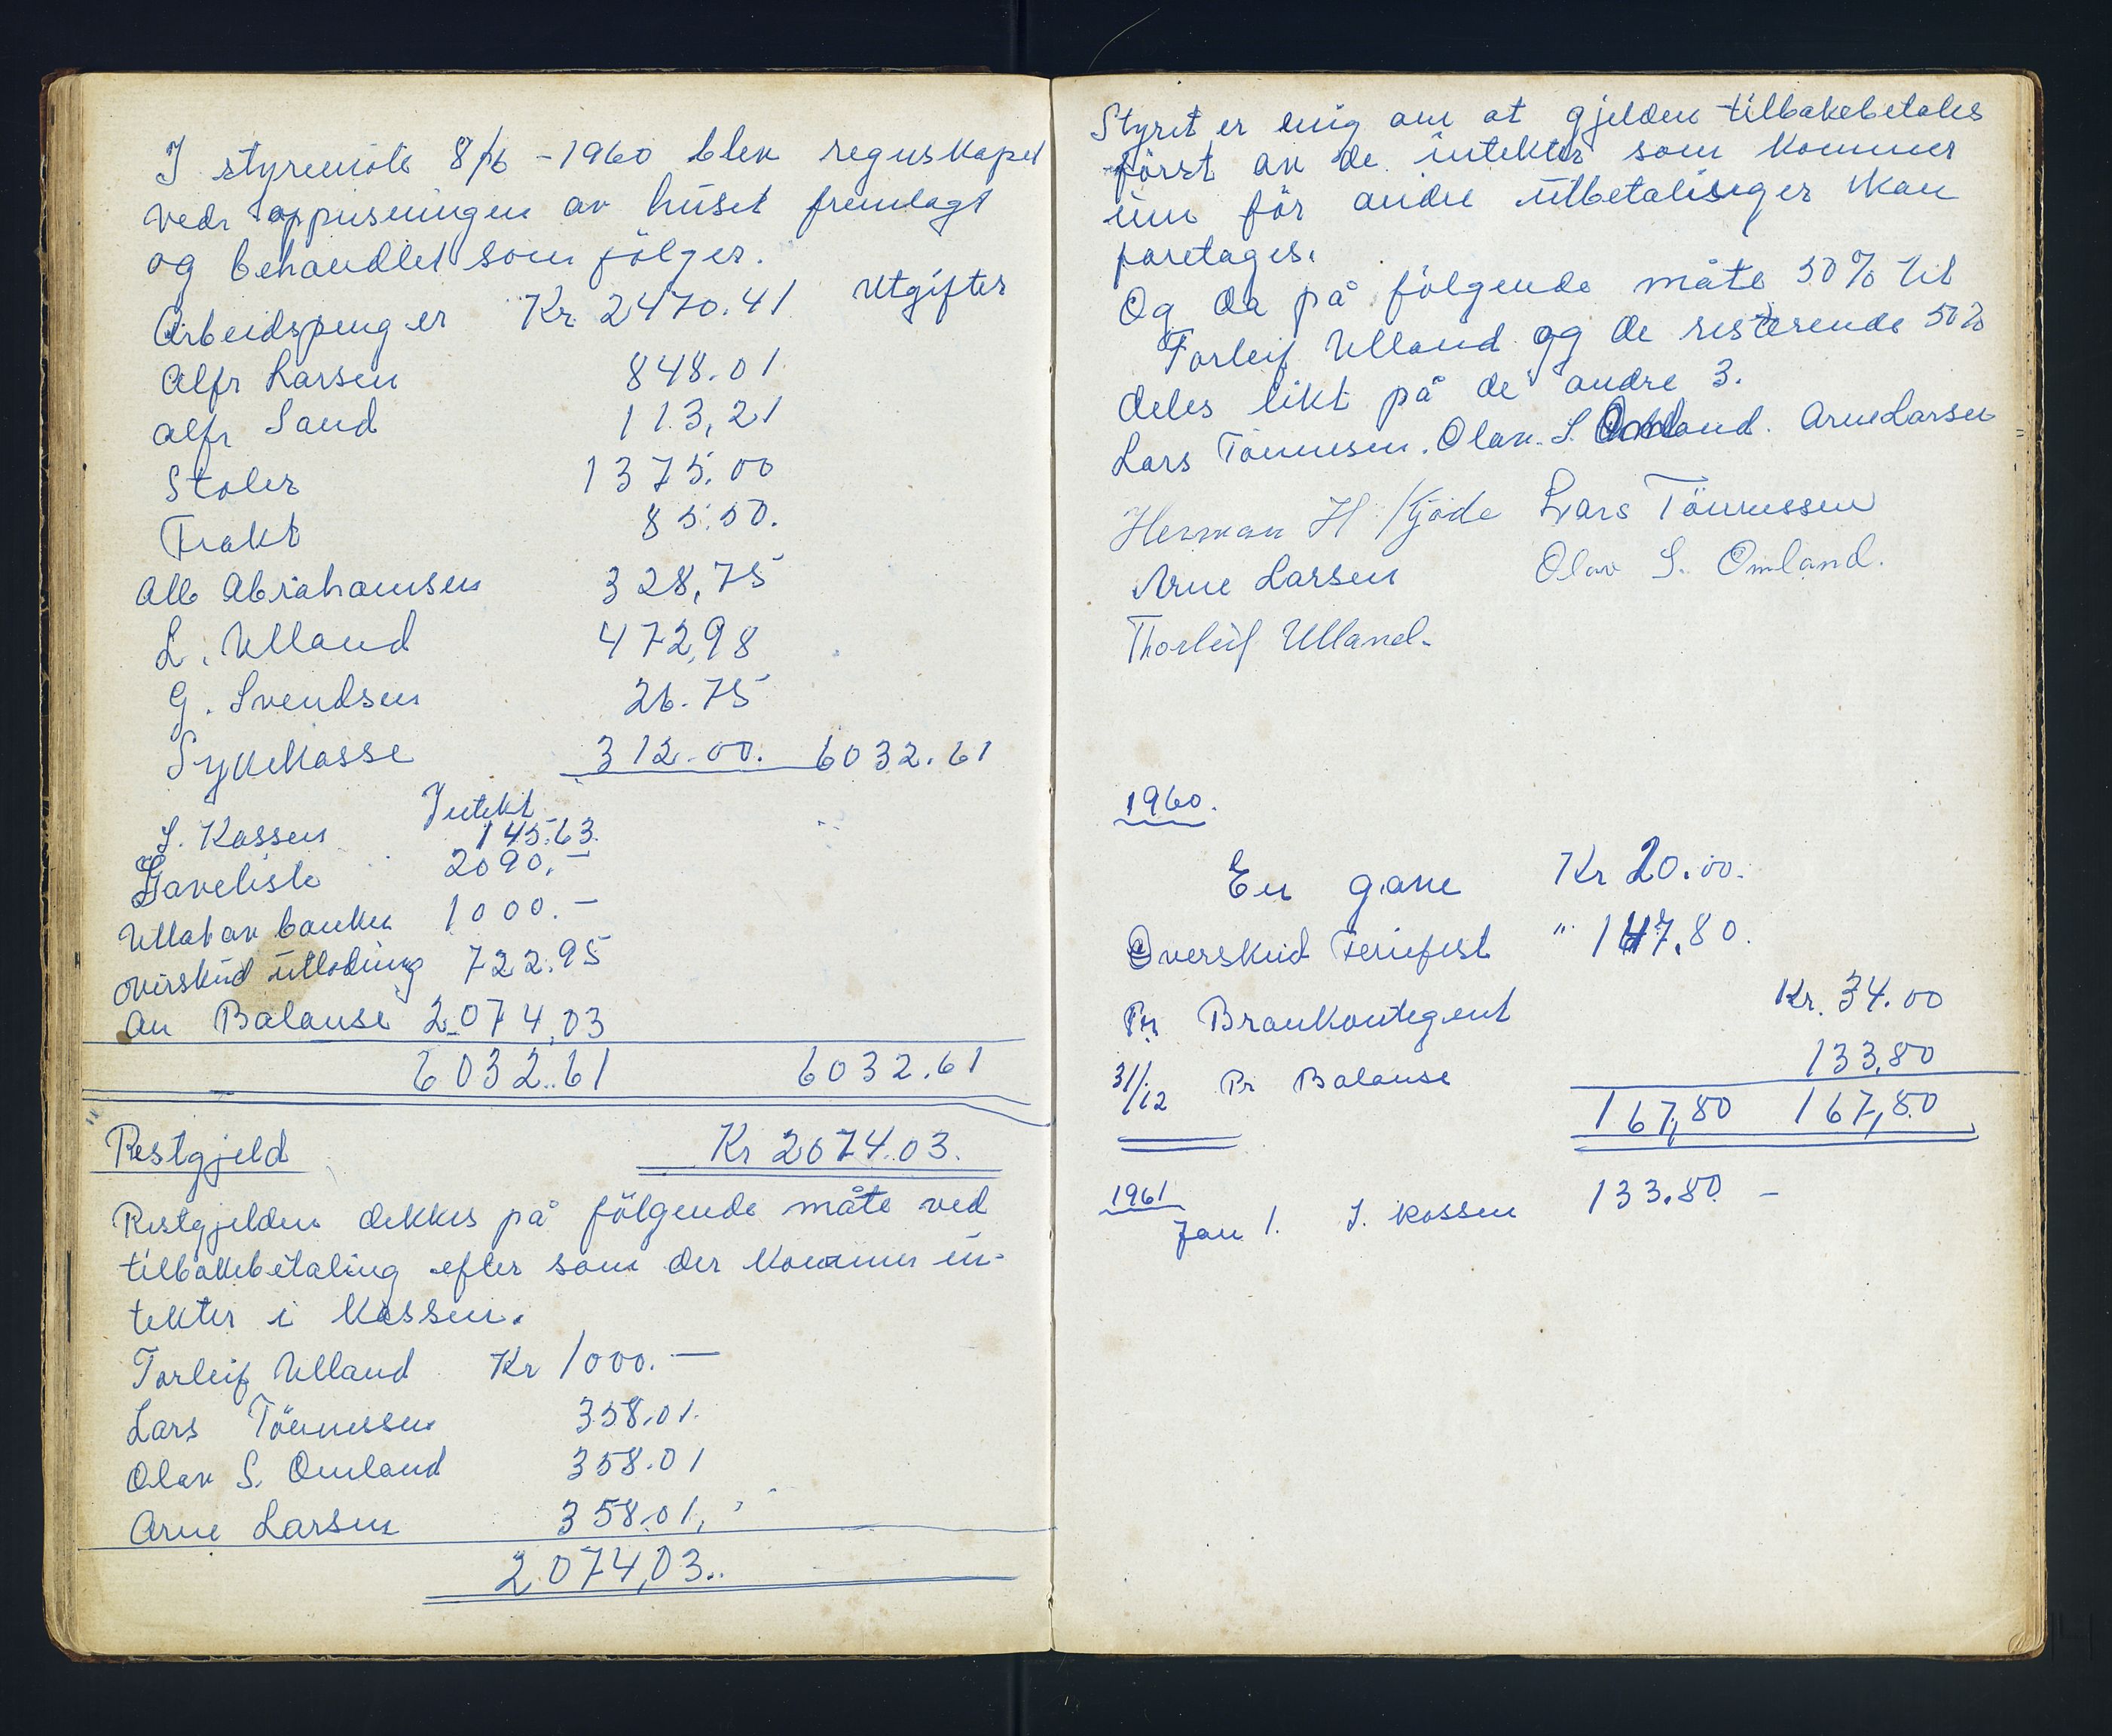 I styremöte 8/6 - 1960 blev regnskapet
vedr oppusningen av huset fremlagt
og behandlet som fölger.
Utgifter
Arbeidspenger Kr. 2470.41
Alfr Larsen 848.01
Alfr Sand 113,21
Stoler 1375.00
Frakt 85.50.
Alb Abrahamsen 328,75
L. Ulland 472,98
G. Svendsen 26.75
Sykekasse 312.00. 6032.61
Intekt
I. Kassen 145.63.
Gaveliste 2090.-
Uttat av banken 1000.-
overskud utlodning 722.95
An Balanse 2074,03
6032.61 6032.61
Restgjeld Kr 2074.03.
Restgjelden dekkes på fölgende måte ved
tilbakebetaling efter som der kommer in-
tekter i kassen.
Torleif Ulland Kr 1000.-
Lars Tönnessen 358.01.
Olav S. Omland 358.01
Arne Larsen 358.01.
2.074,03..
Styret er enig om at gjelden tilbakebetales
först av de intekter som kommer
inn för andre utbetalinger kan
foretages.
Og da på fölgende måte 50% til
Torleif Ulland og de resterende 50%
deles likt på de andre 3.
Lars Tönnesen. Olav. S. Omland. Arne Larsen
Herman H Kjöde Lars Tönnessen
Arne Larsen Olav S. Omland.
Thorleif Ulland.
1960.
En gave Kr 20.00.
Overskud Feriefest " 147.80.
Pr Brankontegent Kr. 34.00
31/12 Pr Balanse 133,80
167,80 167,80
1961
Jan 1. I kassen 133.80 -